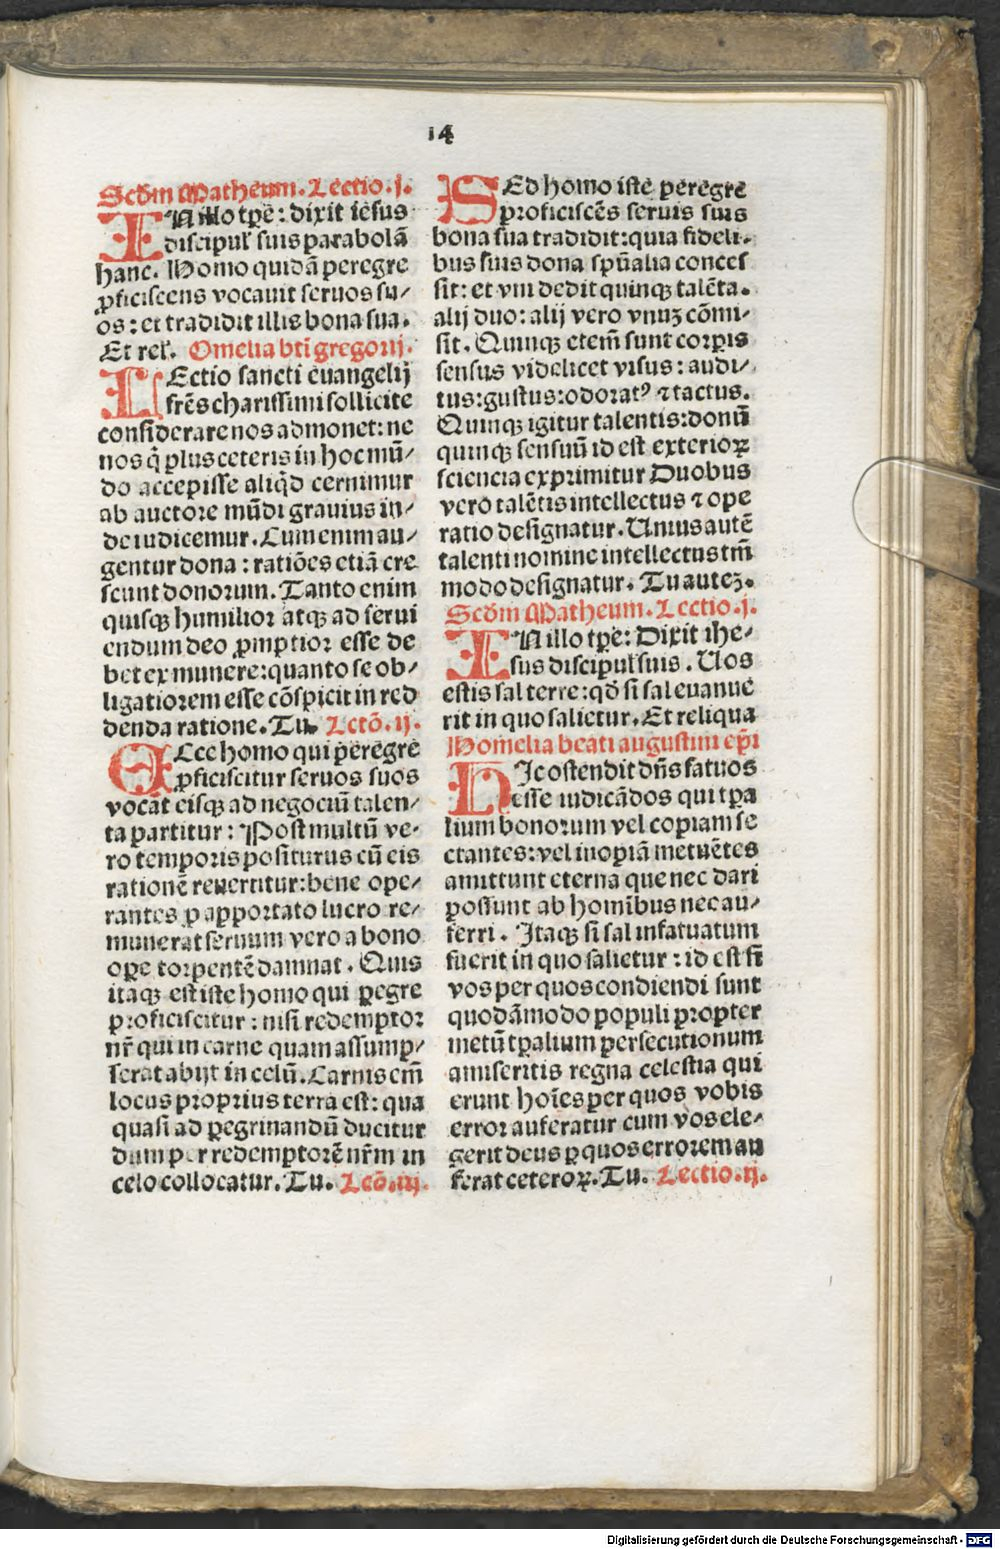 14
Scd̄m Matheum. Lectio. j.
IN illo tp̄e: dixit iesus
discipul' suis parabolā
hanc. Homo quidā peregre
ꝓficiscens vocauit seruos su/
os: et tradidit illis bona sua.
Et rel'. Omelia bt̄i gregorij.
LEctio sancti euangelij
frēs charissimi sollicite
considerare nos admonet: ne
nos q̇ plus ceteris in hoc mū/
do accepisse aliq̇d cernimur
ab auctore mūdi grauius in/
de iudicemur. Cum enim au/
gentur dona: ratiōes etiā cre
scunt donorum. Tanto enim
quisqꝫ humilior atqꝫ ad serui
endum deo ꝓmptior esse de
bet ex munere: quanto se ob/
ligatiorem esse cōspicit in red
denda ratione. Tu. Lectō. ij.
ECce homo qui peregre
ꝓficiscitur seruos suos
vocat eisqꝫ ad negociū talen/
ta partitur: Post multū ve/
ro temporis positurus cū eis
rationē reuertitur: bene ope/
rantes ꝓ apportato lucro re/
munerat seruum vero a bono
oꝑe torpentē damnat. Quis
itaqꝫ est iste homo qui ꝑegre
proficiscitur: nisi redemptor
nr̄ qui in carne quam assump/
serat abijt in celū. Carnis em̄
locus proprius terra est: qua
quasi ad ꝑegrinandū ducitur
dum per redemptorē nr̄m in
celo collocatur. Tu. Lcō. iij.
SEd homo iste peregre
proficiscēs seruis suis
bona sua tradidit: quia fideli/
bus suis dona spūalia conces
sit: et vni dedit quinqꝫ talēta.
alij duo: alij vero vnuꝫ cōmi/
sit. Quinqꝫ etem̄ sunt corꝑis
sensus videlicet visus: audi/
tus: gustus: odoratꝰ ⁊ tactus.
Quinqꝫ igitur talentis: donū
quinqꝫ sensuū id est exterioꝝ
sciencia exprimitur Duobus
vero talētis intellectus ⁊ ope
ratio designatur. Unius autē
talenti nomine intellectus tm̄
modo designatur. Tu auteꝫ.
Scd̄m Matheum. Lectio. j.
IN illo tp̄e: Dixit ihe/
sus discipul' suis. Uos
estis sal terre: qd̄ si sal euanue
rit in quo salietur. Et reliqua
Homelia beati augustini ep̄i
HIc ostendit dn̄s fatuos
esse iudicādos qui tꝑa
lium bonorum vel copiam se
ctantes: vel inopiā metuētes
amittunt eterna que nec dari
possunt ab homībus nec au/
ferri. Itaqꝫ si sal infatuatum
fuerit in quo salietur: id est si
vos per quos condiendi sunt
quodāmodo populi propter
metū tꝑalium persecutionum
amiseritis regna celestia qui
erunt hoīes per quos vobis
error auferatur cum vos ele/
gerit deus ꝑ quos errorem au
ferat ceteroꝝ. Tu. Lectio. ij.
Digitalisierung gefördert durch die Deutsche Forschungsgemeinschaft - DFG